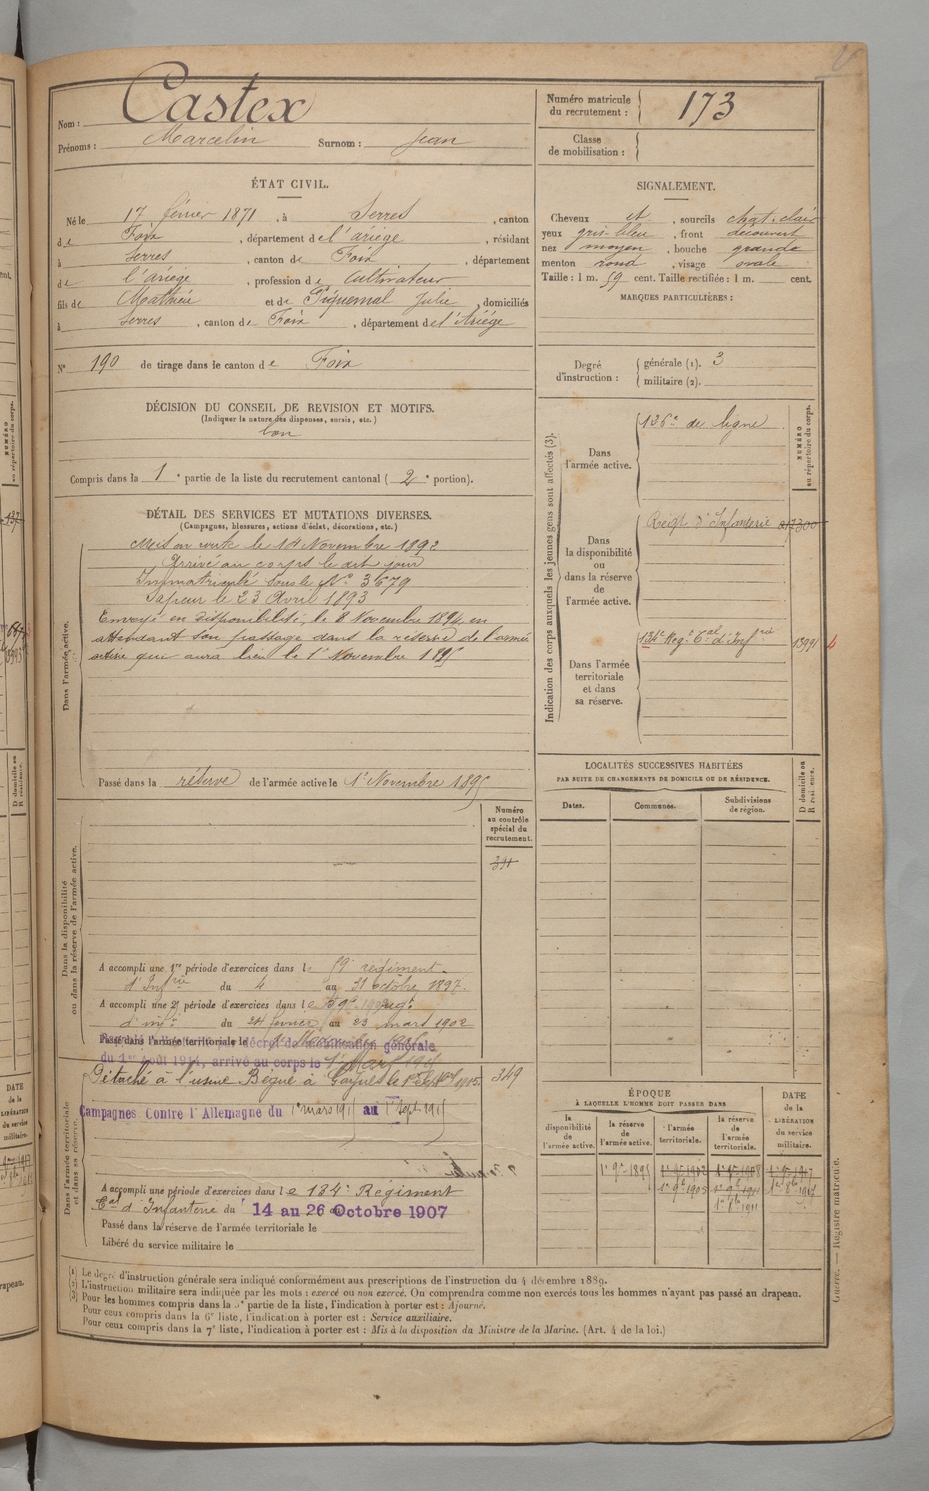 Nom : Castex
Prénoms : Marcelin Surnom : Jean
Numéro matricule du recrutement : 173
Classe de mobilisation :
ÉTAT CIVIL.
Né le 17 février 1871, à Serres, canton
de Foix, département de l'ariège, résidant
à Serres, canton de Foix, département
de l'ariège, profession de cultivateur
fils de Mathieu et de Piquemal Julie, domiciliés
à Serres, canton de Foix, département de l'Ariège
N° 190 de tirage dans le canton de Foix
SIGNALEMENT.
Cheveux et, sourcils chat. clair
yeux gris-bleu, front découvert
nez moyen, bouche grande
menton rond, visage ovale
Taille : 1 m. 59 cent. Taille rectifiée : 1 m. cent.
MARQUES PARTICULIÈRES :
Degré d'instruction : générale (1). 3
militaire (2).
DÉCISION DU CONSEIL DE REVISION ET MOTIFS.
(Indiquer la nature des dispenses, sursis, etc.)
bon
Compris dans la 1e partie de la liste du recrutement cantonal (2e portion).
DÉTAIL DES SERVICES ET MUTATIONS DIVERSES.
(Campagnes, blessures, actions d'éclat, décorations, etc.)
Dans l'armée active.
Mis en route le 14 Novembre 1892
Arrivé au corps le dit jour
Immatriculé sous le N° 3679
Sapeur le 23 Avril 1893
Envoyé en disponibilité, le 8 Novembre 1894, en
attendant son passage dans la réserve de l'armée
active qui aura lieu le 1er Novembre 1895
Passé dans la réserve de l'armée active le 1er Novembre 1895
Indication des corps auxquels les jeunes gens sont affectés (3).
NUMÉRO au répertoire du corps.
Dans l'armée active.
136e de ligne
Dans la disponibilité ou dans la réserve de l'armée active.
Régt d'Infanterie
Dans l'armée territoriale et dans sa réserve.
134e Regt Cal d'Infrie
LOCALITÉS SUCCESSIVES HABITÉES
PAR SUITE DE CHANGEMENTS DE DOMICILE OU DE RÉSIDENCE.
Dates. Communes. Subdivisions de région. D domicile ou R résid.
Numéro au contrôle spécial du recrutement.
Dans la disponibilité ou dans la réserve de l'armée active.
A accompli une 1re période d'exercices dans le 59e régiment
d'Infrie du 4 au 31 octobre 1897.
A accompli une 2e période d'exercices dans le 59e regt
d'infie du 24 février au 23 mars 1902
Passé dans l'armée territoriale le
décret de mobilisation générale
du 1er Août 1914, arrivé au corps le 1er Mars 1915
Dans l'armée territoriale et dans sa réserve.
Détaché à l'usine Bégué à le 1er Septbre 1915
349
Campagnes Contre l'Allemagne du 1er mars 1915 au 1er Sept 1915
A accompli une période d'exercices dans le 134e Régiment
Cal d'Infanterie du 14 au 26 Octobre 1907
Passé dans la réserve de l'armée territoriale le
Libéré du service militaire le
ÉPOQUE
À LAQUELLE L'HOMME DOIT PASSER DANS
la disponibilité de l'armée active. la réserve de l'armée active. l'armée territoriale. la réserve de l'armée territoriale.
DATE de la LIBÉRATION du service militaire.
1er 9bre 1895
(1) Le degré d'instruction générale sera indiqué conformément aux prescriptions de l'instruction du 4 décembre 1889.
(2) L'instruction militaire sera indiquée par les mots : exercé ou non exercé. On comprendra comme non exercés tous les hommes n'ayant pas passé au drapeau.
(3) Pour les hommes compris dans la 5e partie de la liste, l'indication à porter est : Ajourné.
Pour ceux compris dans la 6e liste, l'indication à porter est : Service auxiliaire.
Pour ceux compris dans la 7e liste, l'indication à porter est : Mis à la disposition du Ministre de la Marine. (Art. 4 de la loi.)
Guerre. — Registre matricule.